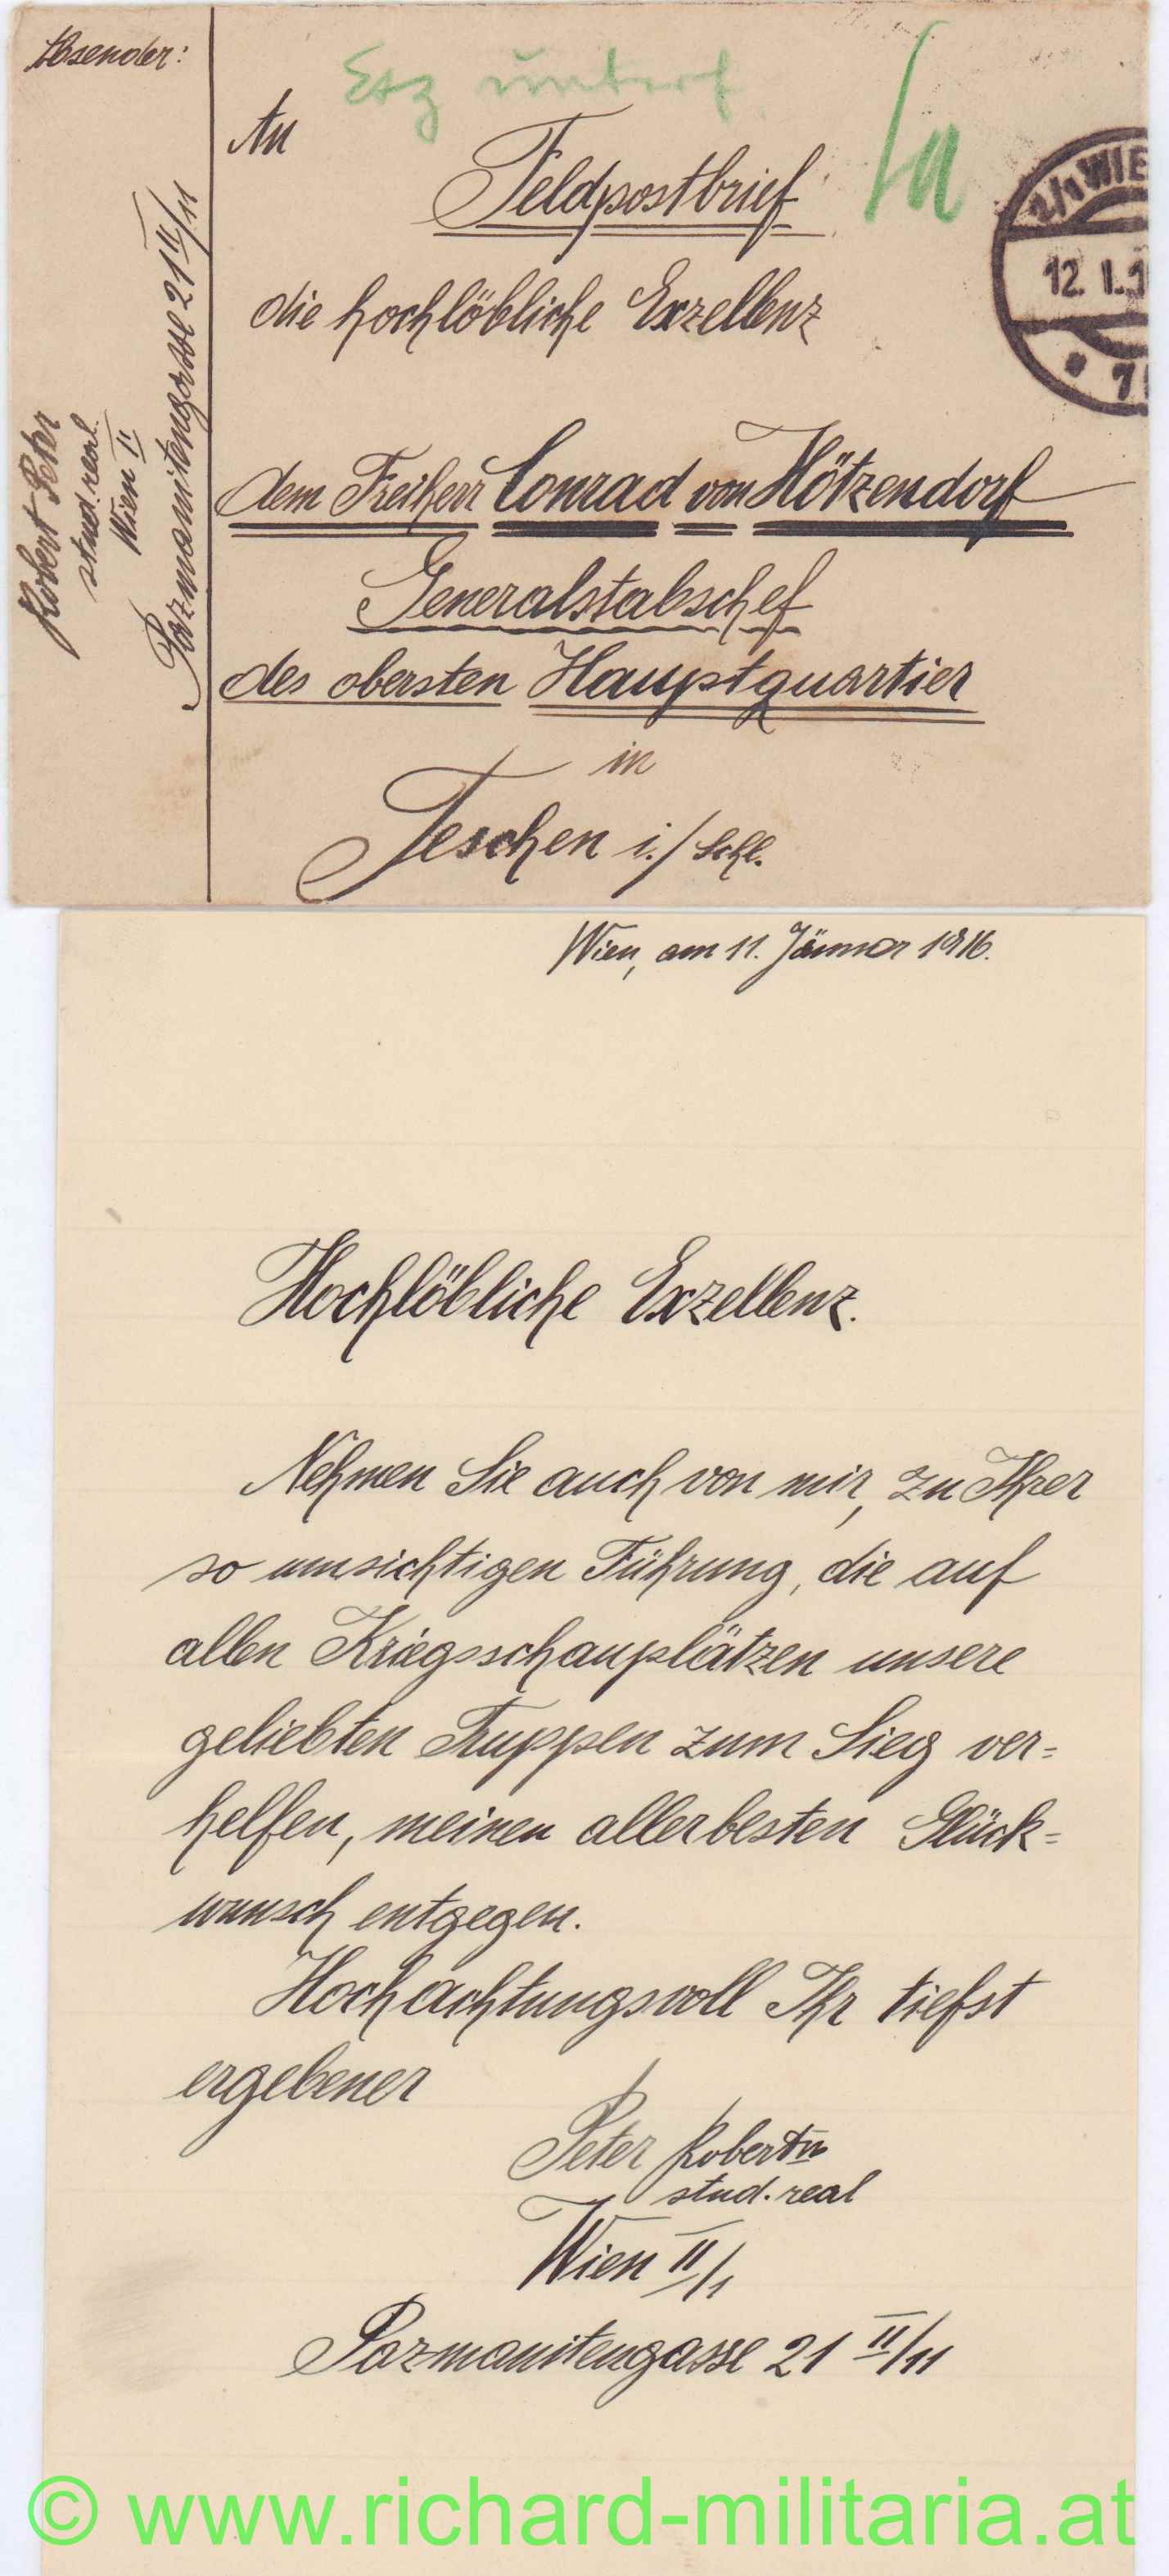 Absender:
Robert Peter
stud. real.
Wien II
Pazmanitengasse 21 II/11
An
Feldpostbrief
1a
2/1 WIE
12. I. 1
die hochlöbliche Exzellenz
dem Freiherr Conrad von Hötzendorf
Generalstabschef
des obersten Hauptquartier
in
Teschen i./Schl.
Wien, am 11. Jänner 1916.
Hochlöbliche Exzellenz.
Nehmen Sie auch von mir, zu Ihrer
so umsichtigen Führung, die auf
allen Kriegsschauplätzen unsere
geliebten Truppen zum Sieg ver=
helfen, meinen allerbesten Glück=
wunsch entgegen.
Hochachtungsvoll Ihr tiefst
ergebener
Peter Robert
stud. real
Wien II/1
Pazmanitengasse 21 II/11
© www.richard-militaria.at